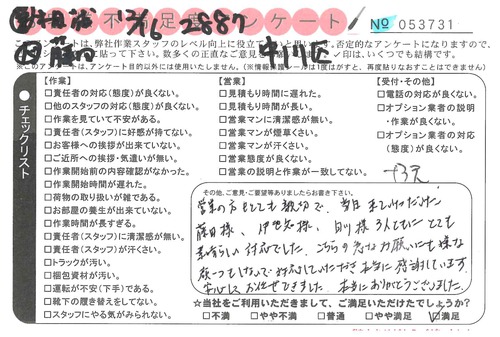 不満足度アンケート
12/16 2887
中川区
№ 053731
ンケートは、弊社作業スタッフのレベル向上に役立て
否定的なアンケートになりますので、
☑印は、いくつでも結構です。
※このアンケートは、アンケート目的以外には使用いたしません。
チェックリスト
【作業】
□責任者の対応(態度)が良くない。
□他のスタッフの対応(態度)が良くない。
□作業を見ていて不安がある。
□責任者(スタッフ)に好感が持てない。
□お客様への挨拶が出来ていない。
□ご近所への挨拶・気遣いが無い。
□作業開始前の内容確認がなかった。
□作業開始時間が遅れた。
□荷物の取り扱いが雑である。
□お部屋の養生が出来ていない。
□作業時間が長すぎる。
□責任者(スタッフ)に清潔感が無い。
□責任者(スタッフ)が汗くさい。
□トラックが汚い。
□梱包資材が汚い。
□運転が不安(下手)である。
□靴下の履き替えをしてない。
□スタッフにやる気がみられない。
【営業】
□見積もり時間に遅れた。
□見積もり時間が長い。
□営業マンに清潔感が無い。
□営業マンが煙草くさい。
□営業マンが汗くさい。
□営業態度が良くない。
□営業の説明と作業が一致してない。
【受付・その他】
□電話の対応が良くない。
□オプション業者の説明
・作業が良くない。
□オプション業者の対応
(態度)が良くない。
その他、ご意見・ご要望等ありましたらお書き下さい。
営業の方もとても親切で、当日来ていただけた
藤田様、伊佐名様、 3人ともにとても
素晴らしい対応でした。こちらの急なお願いにも嫌な
顔一つせずに対応していただき本当に感謝しています。
安心してお任せできました。本当にありがとうございました。
☆当社をご利用いただきまして、ご満足いただけたでしょうか?
□不満 □やや不満 □普通 □やや満足 ☑満足